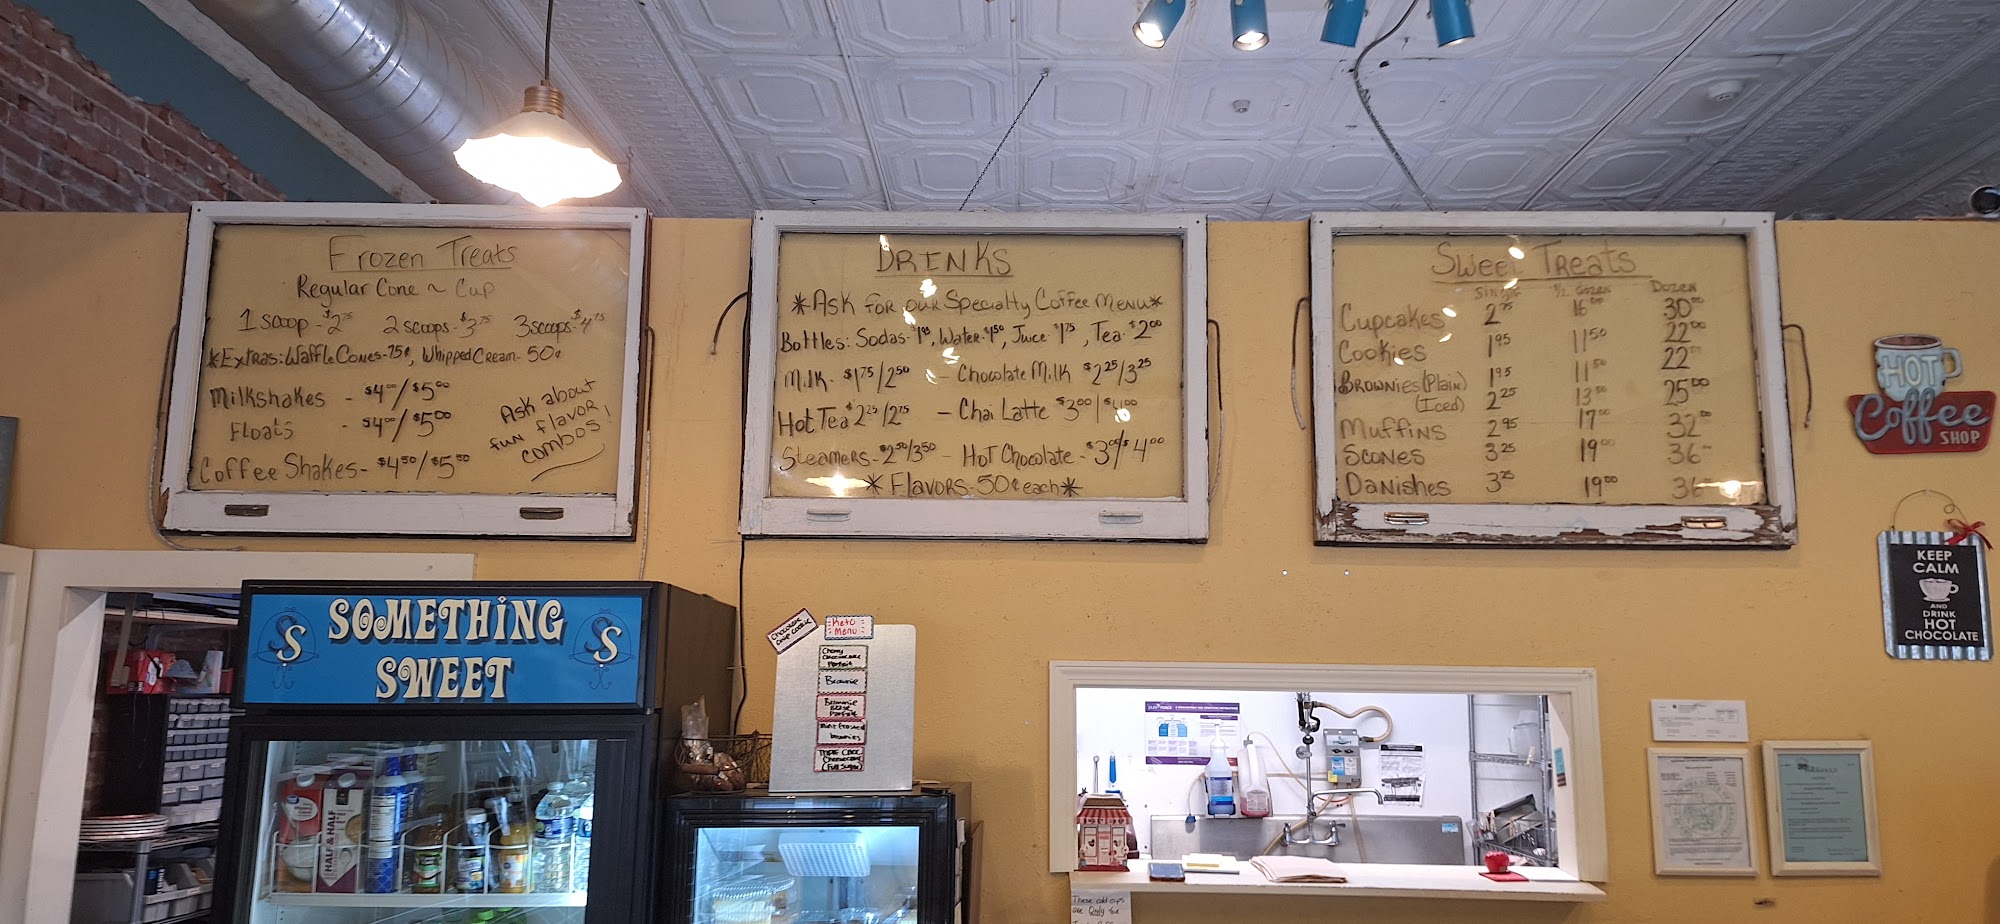 Frozen Treats
Regular Cone ~ Cup
1 scoop - $2.75 2 scoops - $3.75 3 scoops - $4.75
*Extras: Waffle Cones - 75¢, Whipped Cream - 50¢
Milkshakes - $4.00/$5.00
Floats - $4.00/$5.00
Coffee Shakes - $4.50/$5.50
Ask about
fun flavor
combos!
DRINKS
*Ask for our Specialty Coffee Menu*
Bottles: Sodas - $1.95, Water - $1.50, Juice $1.75, Tea - $2.00
Milk - $1.75/2.50 - Chocolate Milk $2.25/3.25
Hot Tea $2.25/2.75 - Chai Latte $3.00/$4.00
Steamers - $2.50/3.50 - Hot Chocolate - $3.00/$4.00
*Flavors - 50¢ each*
Sweet Treats
Single 1/2 Dozen Dozen
Cupcakes 2.75 16.00 30.00
Cookies 1.95 11.50 22.00
Brownies (Plain) 1.95 11.50 22.00
(Iced) 2.25 13.50 25.00
Muffins 2.95 17.00 32.00
Scones 3.25 19.00 36.00
Danishes 3.25 19.00 36.00
HOT
Coffee
SHOP
KEEP
CALM
AND
DRINK
HOT
CHOCOLATE
SS SOMETHING SS
SWEET
HALF & HALF
Chocolate
Chip Cookie
Keto
Menu
Cherry
Cheesecake
Parfait
Brownie
Brownie
Parfait
Mint Frosted
brownies
Triple Choc
Cheesecake
(Full Sugar)
These cold cups
are Only for